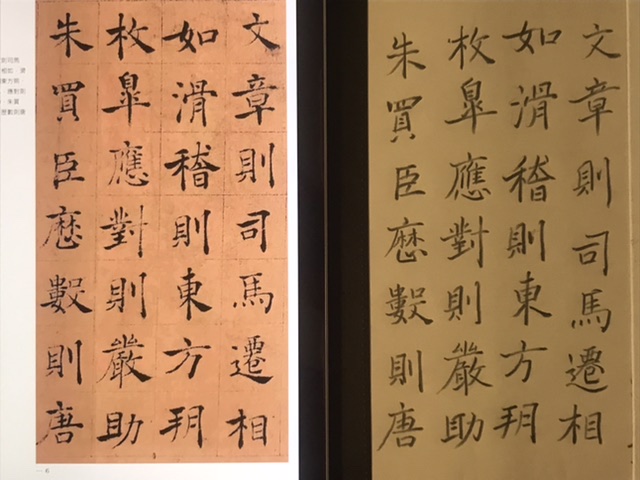 文章則司馬遷相
如滑稽則東方朔
枚皐應對則嚴助
朱買臣厯數則唐
6
文章則司馬遷相
如滑稽則東方朔
枚皐應對則嚴助
朱買臣厯數則唐